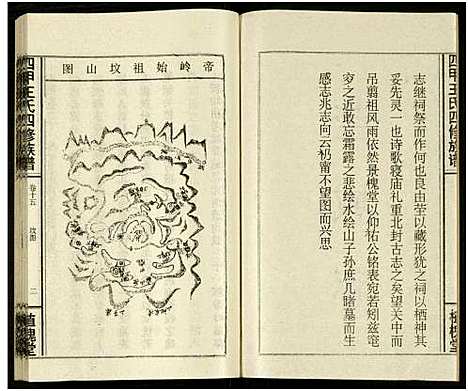 四甲王氏四修族譜
志继祠祭而作也何也良由茔以藏形犹之祠以栖神其
妥先灵一也诗歌寝庙礼重北封古志之矣望关中而
吊翦祖风雨依然景槐堂以仰祐公铭表宛若矧兹窀
穸之近敢忘霜露之悲绘水绘山子孙庶几睹墓而生
感志兆志向云礽甯不望图而兴思
植槐堂
帝岭始祖坟山图
四甲王氏四修族谱
卷十五
坟图
二
植槐堂